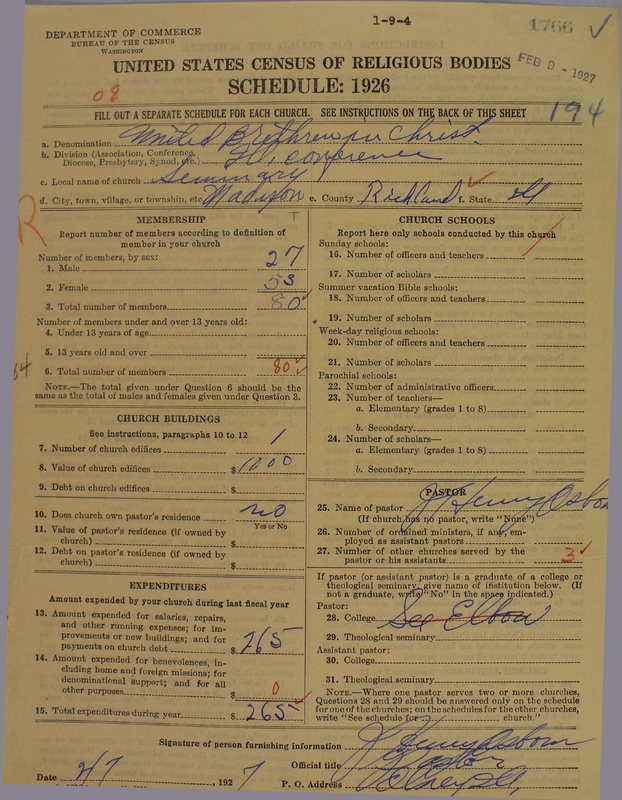 1-9-4
1766 ✓
DEPARTMENT OF COMMERCE
BUREAU OF THE CENSUS
WASHINGTON
FEB 9 - 1927
UNITED STATES CENSUS OF RELIGIOUS BODIES
SCHEDULE: 1926
08
194
FILL OUT A SEPARATE SCHEDULE FOR EACH CHURCH. SEE INSTRUCTIONS ON THE BACK OF THIS SHEET
a. Denomination United Brethren in Christ
b. Division (Association, Conference, Diocese, Presbytery, Synod, etc.) Ill. Conference
c. Local name of church Seminary
d. City, town, village, or township, etc. Madison e. County Richland f. State Ill
R
MEMBERSHIP
Report number of members according to definition of
member in your church
Number of members, by sex:
1. Male 27
2. Female 53
3. Total number of members 80
Number of members under and over 13 years old:
4. Under 13 years of age
5. 13 years old and over
6. Total number of members 80
NOTE.—The total given under Question 6 should be
the same as the total of males and females given under Question 3.
64
CHURCH BUILDINGS
See instructions, paragraphs 10 to 12
7. Number of church edifices 1
8. Value of church edifices $1000
9. Debt on church edifices $
10. Does church own pastor's residence no
Yes or No
11. Value of pastor's residence (if owned by
church) $
12. Debt on pastor's residence (if owned by
church) $
EXPENDITURES
Amount expended by your church during last fiscal year
13. Amount expended for salaries, repairs,
and other running expenses; for im-
provements or new buildings; and for
payments on church debt $265
14. Amount expended for benevolences, in-
cluding home and foreign missions; for
denominational support; and for all
other purposes $0
15. Total expenditures during year $265
CHURCH SCHOOLS
Report here only schools conducted by this church
Sunday schools:
16. Number of officers and teachers
17. Number of scholars
Summer vacation Bible schools:
18. Number of officers and teachers
19. Number of scholars
Week-day religious schools:
20. Number of officers and teachers
21. Number of scholars
Parochial schools:
22. Number of administrative officers
23. Number of teachers—
a. Elementary (grades 1 to 8)
b. Secondary
24. Number of scholars—
a. Elementary (grades 1 to 8)
b. Secondary
PASTOR
25. Name of pastor J Henry Osborn
(If church has no pastor, write "None")
26. Number of ordained ministers, if any, em-
ployed as assistant pastors
27. Number of other churches served by the
pastor or his assistants 3
If pastor (or assistant pastor) is a graduate of a college or
theological seminary, give name of institution below. (If
not a graduate, write "No" in the space indicated.)
Pastor:
28. College See Elbow
29. Theological seminary
Assistant pastor:
30. College
31. Theological seminary
NOTE.—Where one pastor serves two or more churches,
Questions 28 and 29 should be answered only on the schedule
for one of the churches; on the schedules for the other churches,
write "See schedule for church."
Signature of person furnishing information J Henry Osborn
Official title Pastor
Date 2/7, 1927 P. O. Address